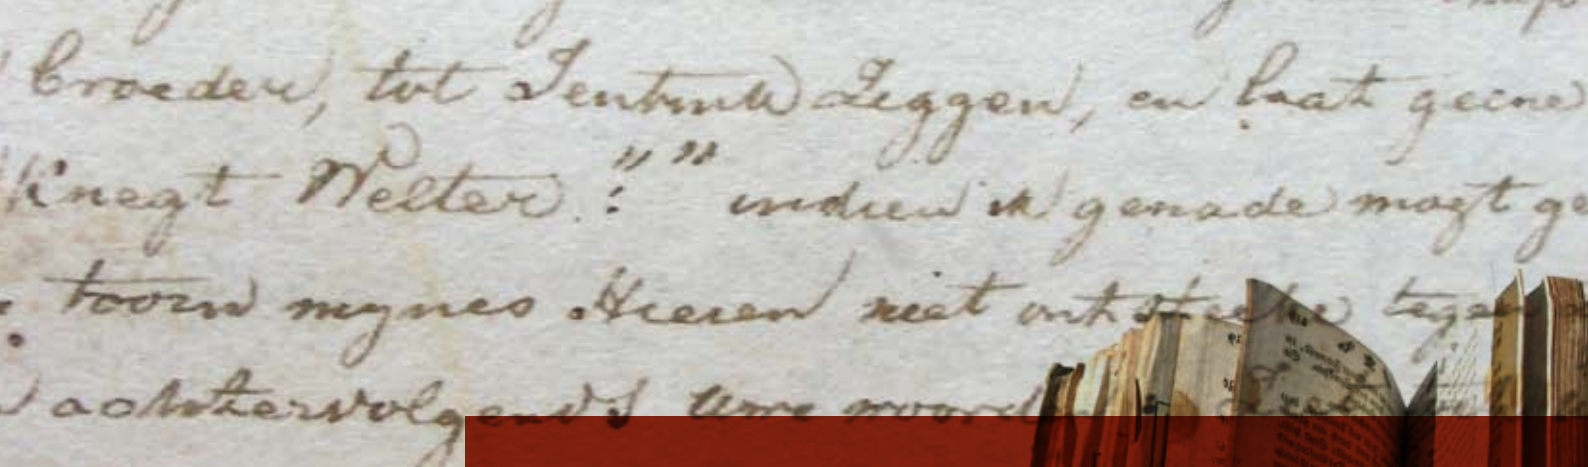 Broeder, tot Jentink Zeggen, en laat geene
Knegt Welter.!"" indien ik genade mogt ge
toorn mynes Heeren niet ontsteeke tegen
achtervolgends Uwe woord